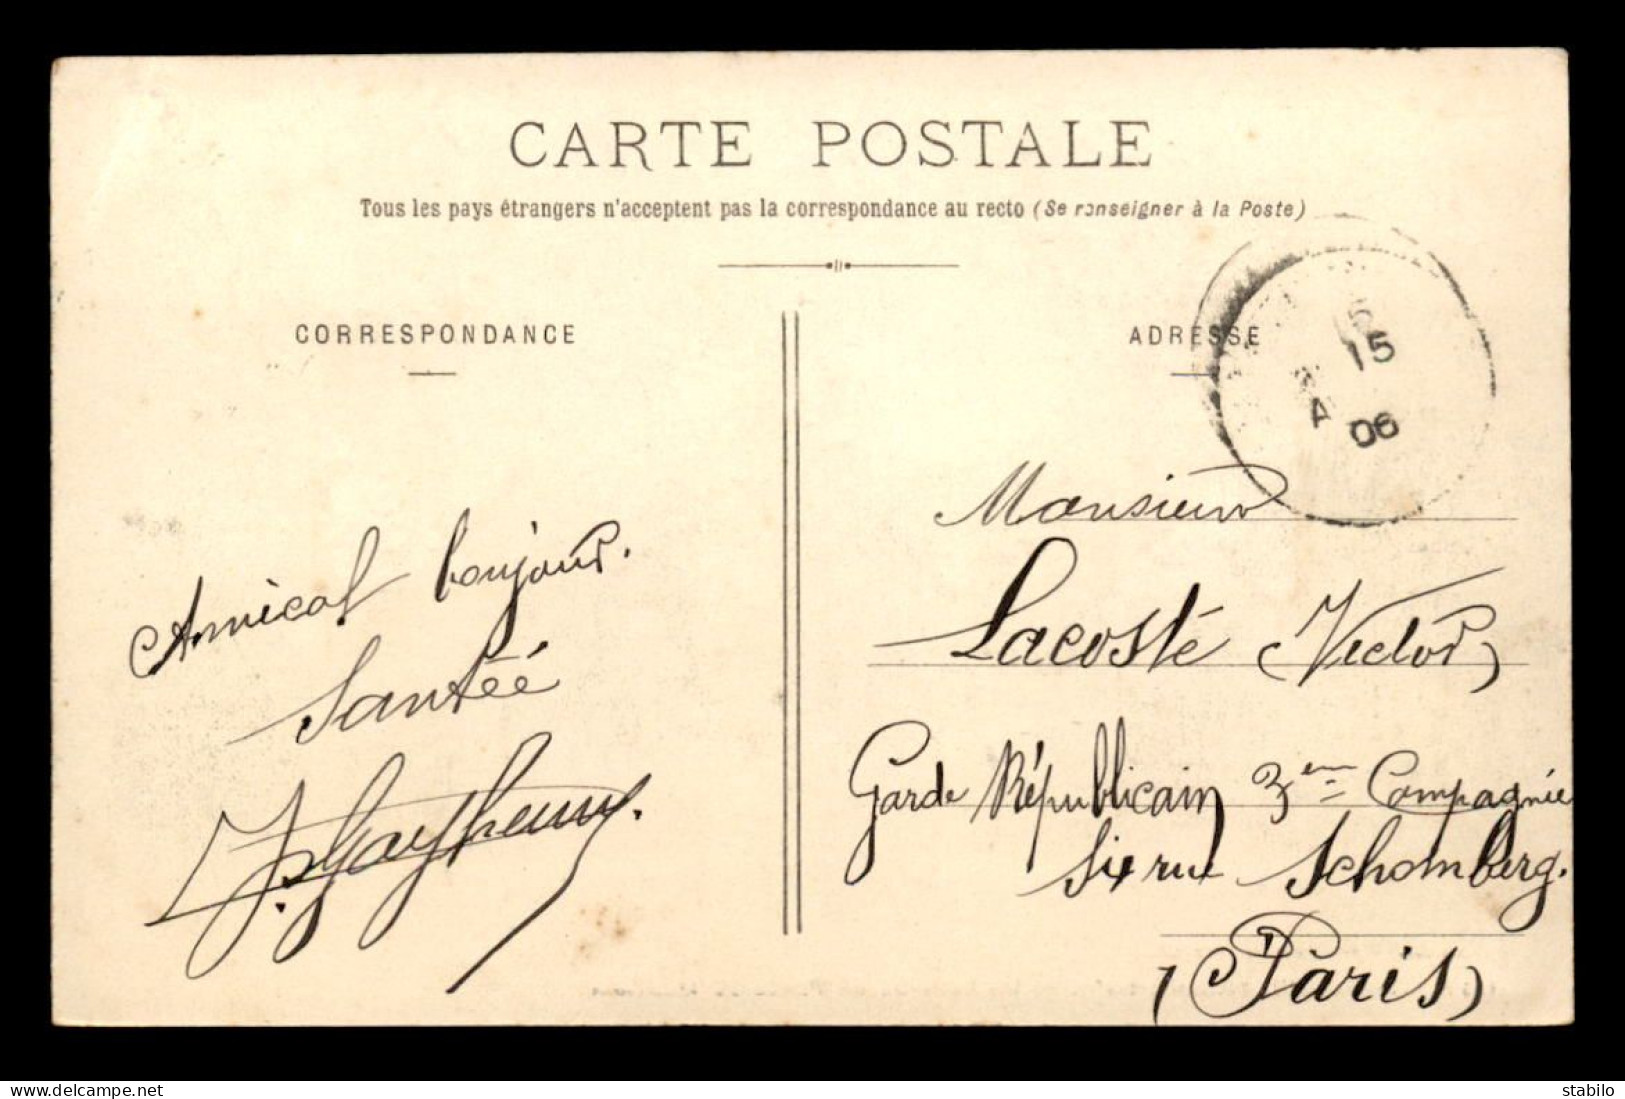 CARTE POSTALE
Tous les pays étrangers n'acceptent pas la correspondance au recto (Se renseigner à la Poste)
CORRESPONDANCE
ADRESSE
15
A 06
Amical bonjour.
Santéé
Monsieur
Lacosté (Victor)
Garde Républicain 3eme Compagnie
Sie rue Schomberg.
(Paris)
delcampe.net
stabilo